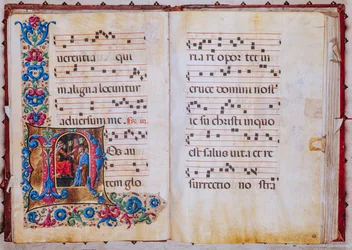 uerentia qui
maligna locuntur
aduersum me.
Nos au
tem glo
ria ri opor tet in
cruce domini nost
ie su christi in quo
est salus uita et re
surrectio no stra